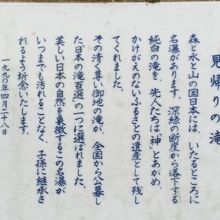 見帰りの滝
森と水と山の国日本には、いたるところに
名瀑があります。深緑の断崖から落下する
純白の滝を、先人たちは「神」とあがめ、
かけがえのないふるさとの遺産として残し
てくれました。
その清く尊い御地の滝が、全国から公募し
た日本の滝百選の一つに選ばれました。
美しい日本の自然を象徴するこの名瀑が、
いつまでも汚れることなく、子孫に継承さ
れるよう祈念いたします。
一九九〇年四月二十八日